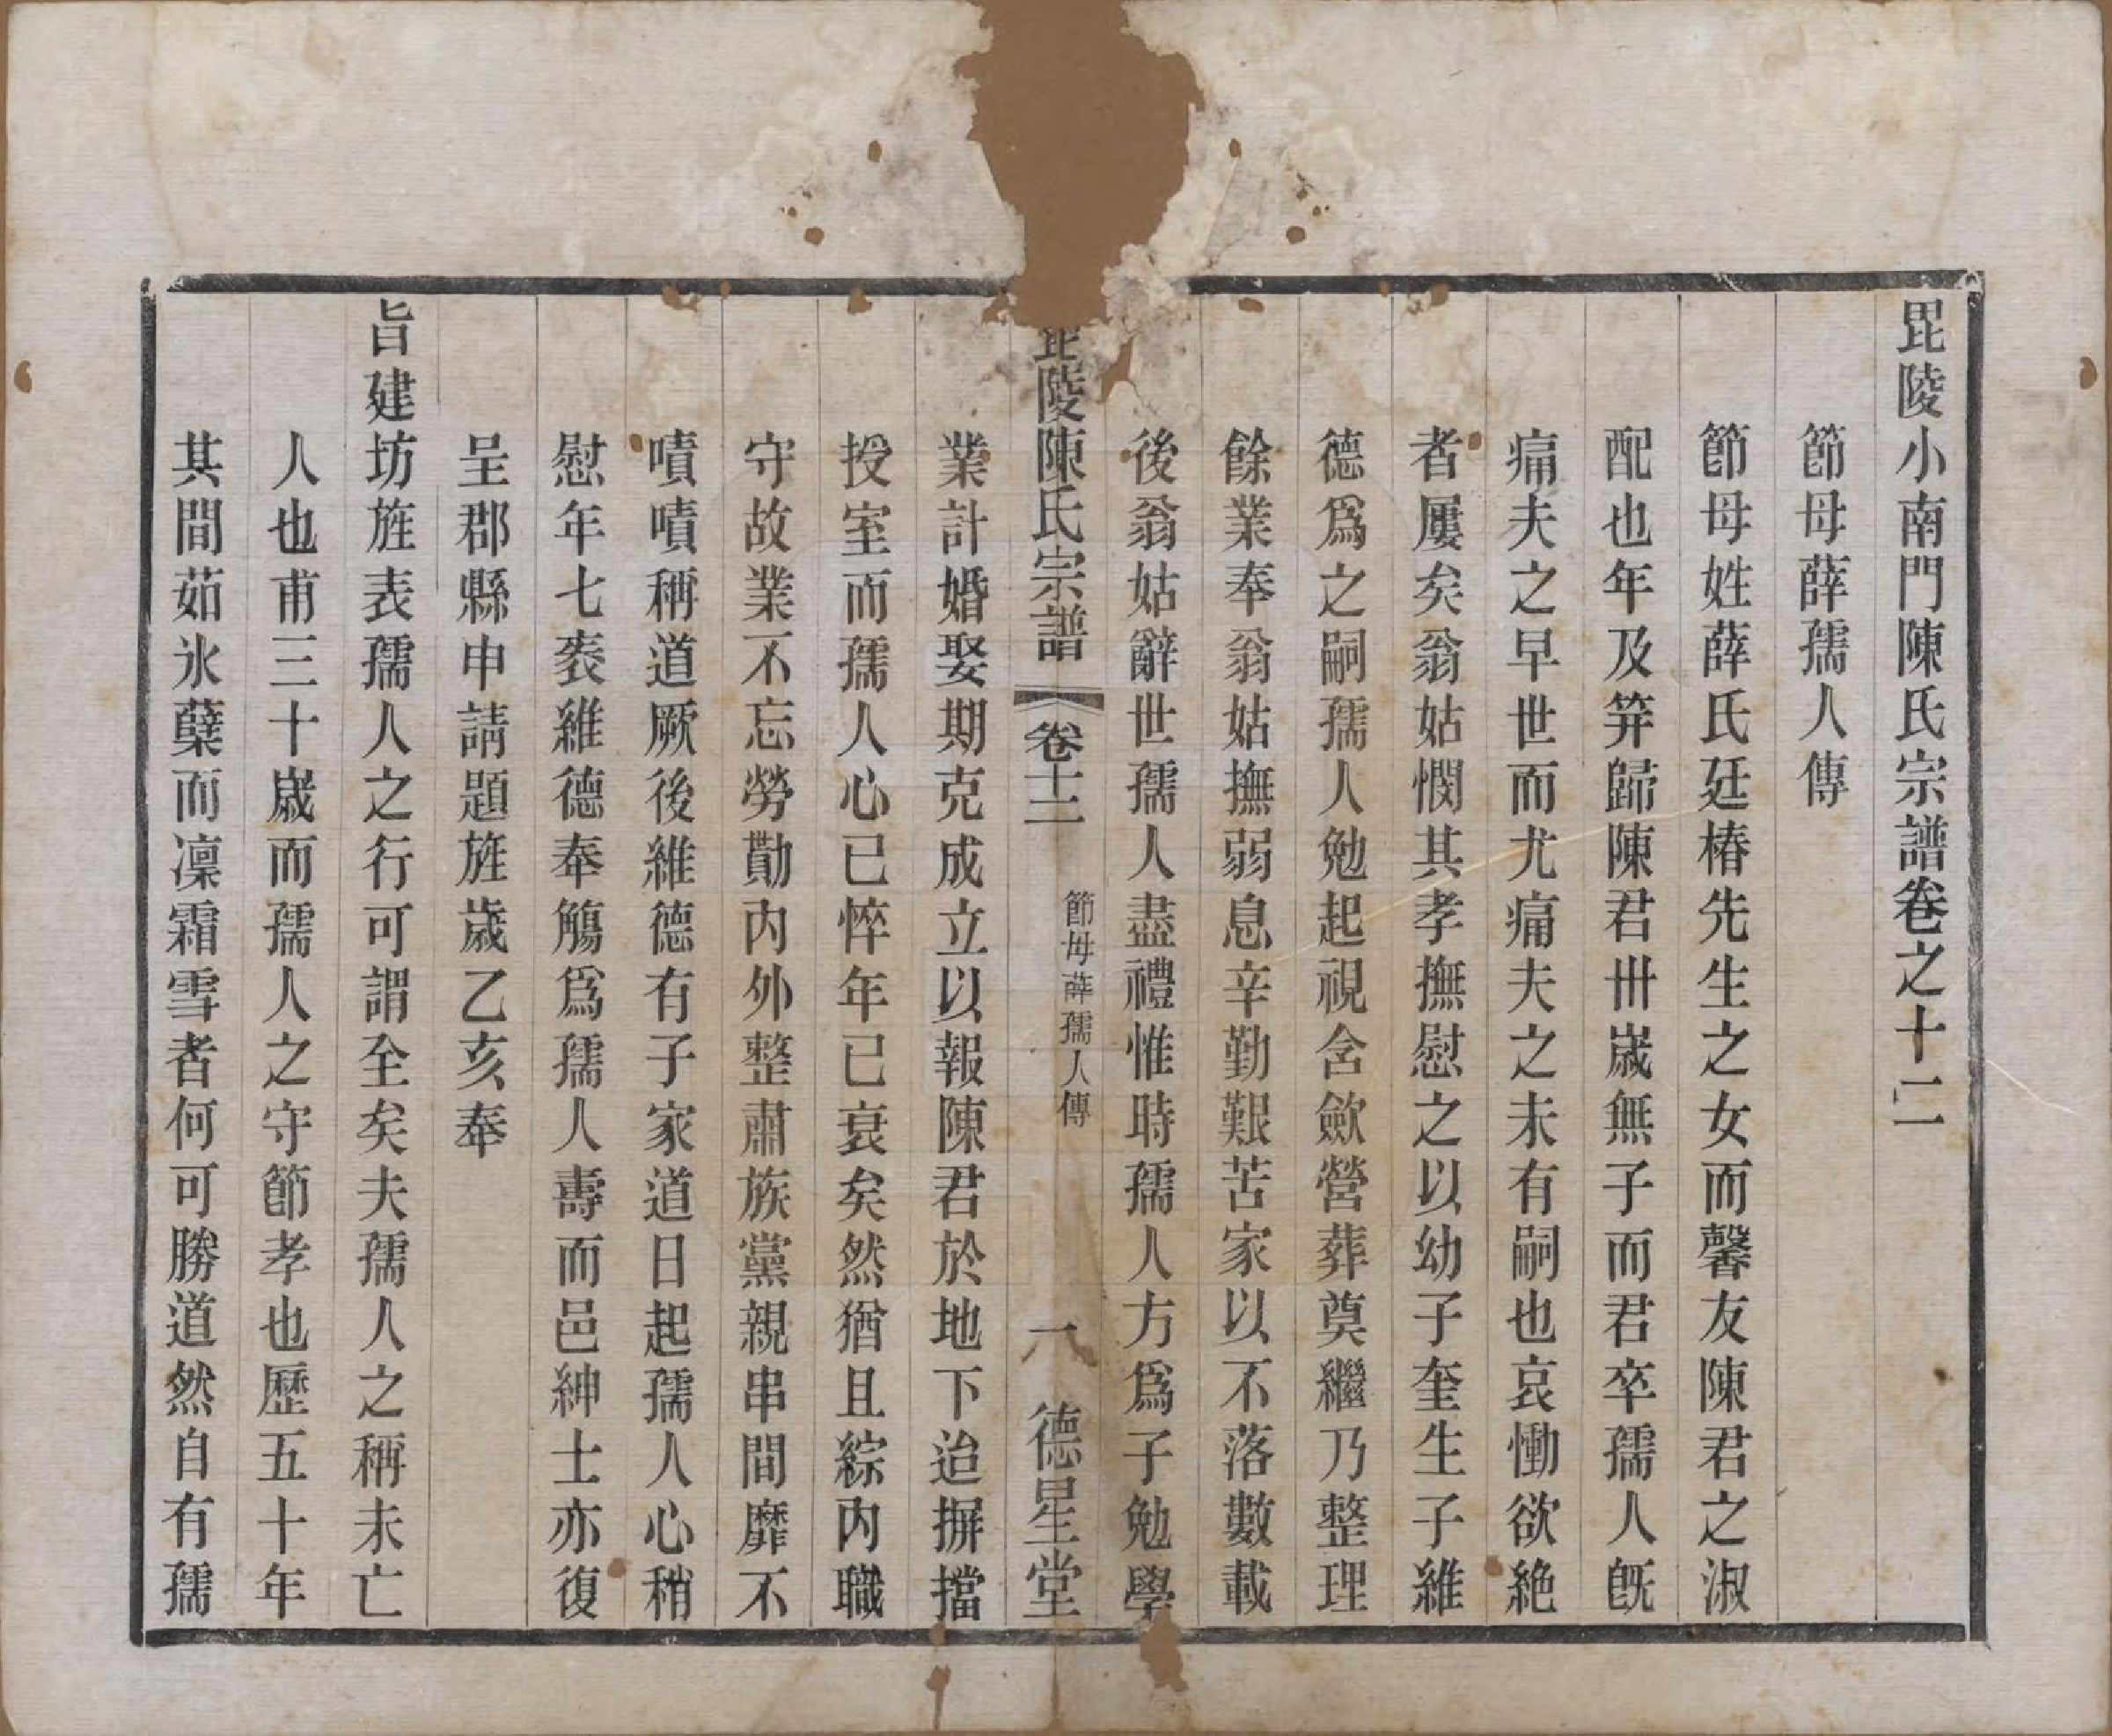 毘陵小南門陳氏宗譜卷之十二
節母薛孺人傳
節母姓薛氏廷椿先生之女而馨友陳君之淑
配也年及笄歸陳君卅歲無子而君卒孺人旣
痛夫之早世而尤痛夫之未有嗣也哀慟欲絶
者屢矣翁姑憫其孝撫慰之以幼子奎生子維
德爲之嗣孺人勉起視含歛營葬奠繼乃整理
餘業奉翁姑撫弱息辛勤艱苦家以不落數載
後翁姑辭世孺人盡禮惟時孺人方爲子勉學
毘陵陳氏宗譜 卷十二 節母薛孺人傳 一 德星堂
業計婚娶期克成立以報陳君於地下迨摒擋
授室而孺人心已悴年已衰矣然猶且綜內職
守故業不忘勞勩內外整肅族黨親串間靡不
嘖嘖稱道厥後維德有子家道日起孺人心稍
慰年七袠維德奉觴爲孺人壽而邑紳士亦復
呈郡縣申請題旌歲乙亥奉
旨建坊旌表孺人之行可謂至矣夫孺人之稱未亡
人也甫三十歲而孺人之守節孝也歷五十年
其間茹氷蘖而凜霜雪者何可勝道然自有孺